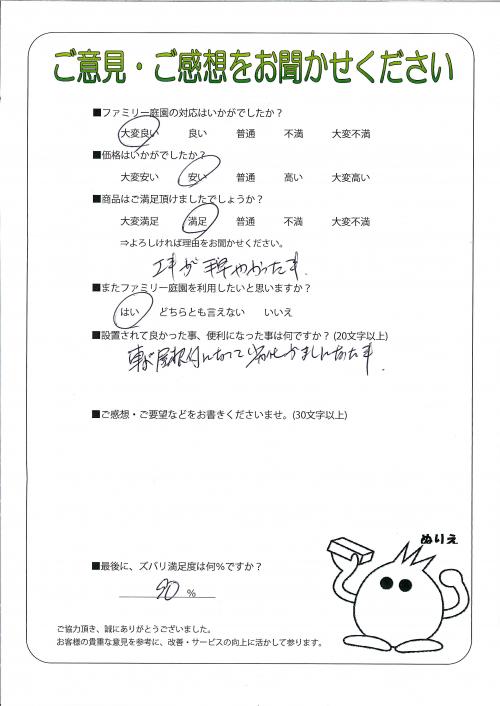 ご意見・ご感想をお聞かせください
■ファミリー庭園の対応はいかがでしたか？
大変良い 良い 普通 不満 大変不満
■価格はいかがでしたか？
大変安い 安い 普通 高い 大変高い
■商品はご満足頂けましたでしょうか？
大変満足 満足 普通 不満 大変不満
⇒よろしければ理由をお聞かせください。
工事が手早やかった事.
■またファミリー庭園を利用したいと思いますか？
はい どちらとも言えない いいえ
■設置されて良かった事、便利になった事は何ですか？(20文字以上)
車が屋根付になって
■ご感想・ご要望などをお書きくださいませ。(30文字以上)
ぬりえ
■最後に、ズバリ満足度は何％ですか？
90 %
ご協力頂き、誠にありがとうございました。
お客様の貴重な意見を参考に、改善・サービスの向上に活かして参ります。